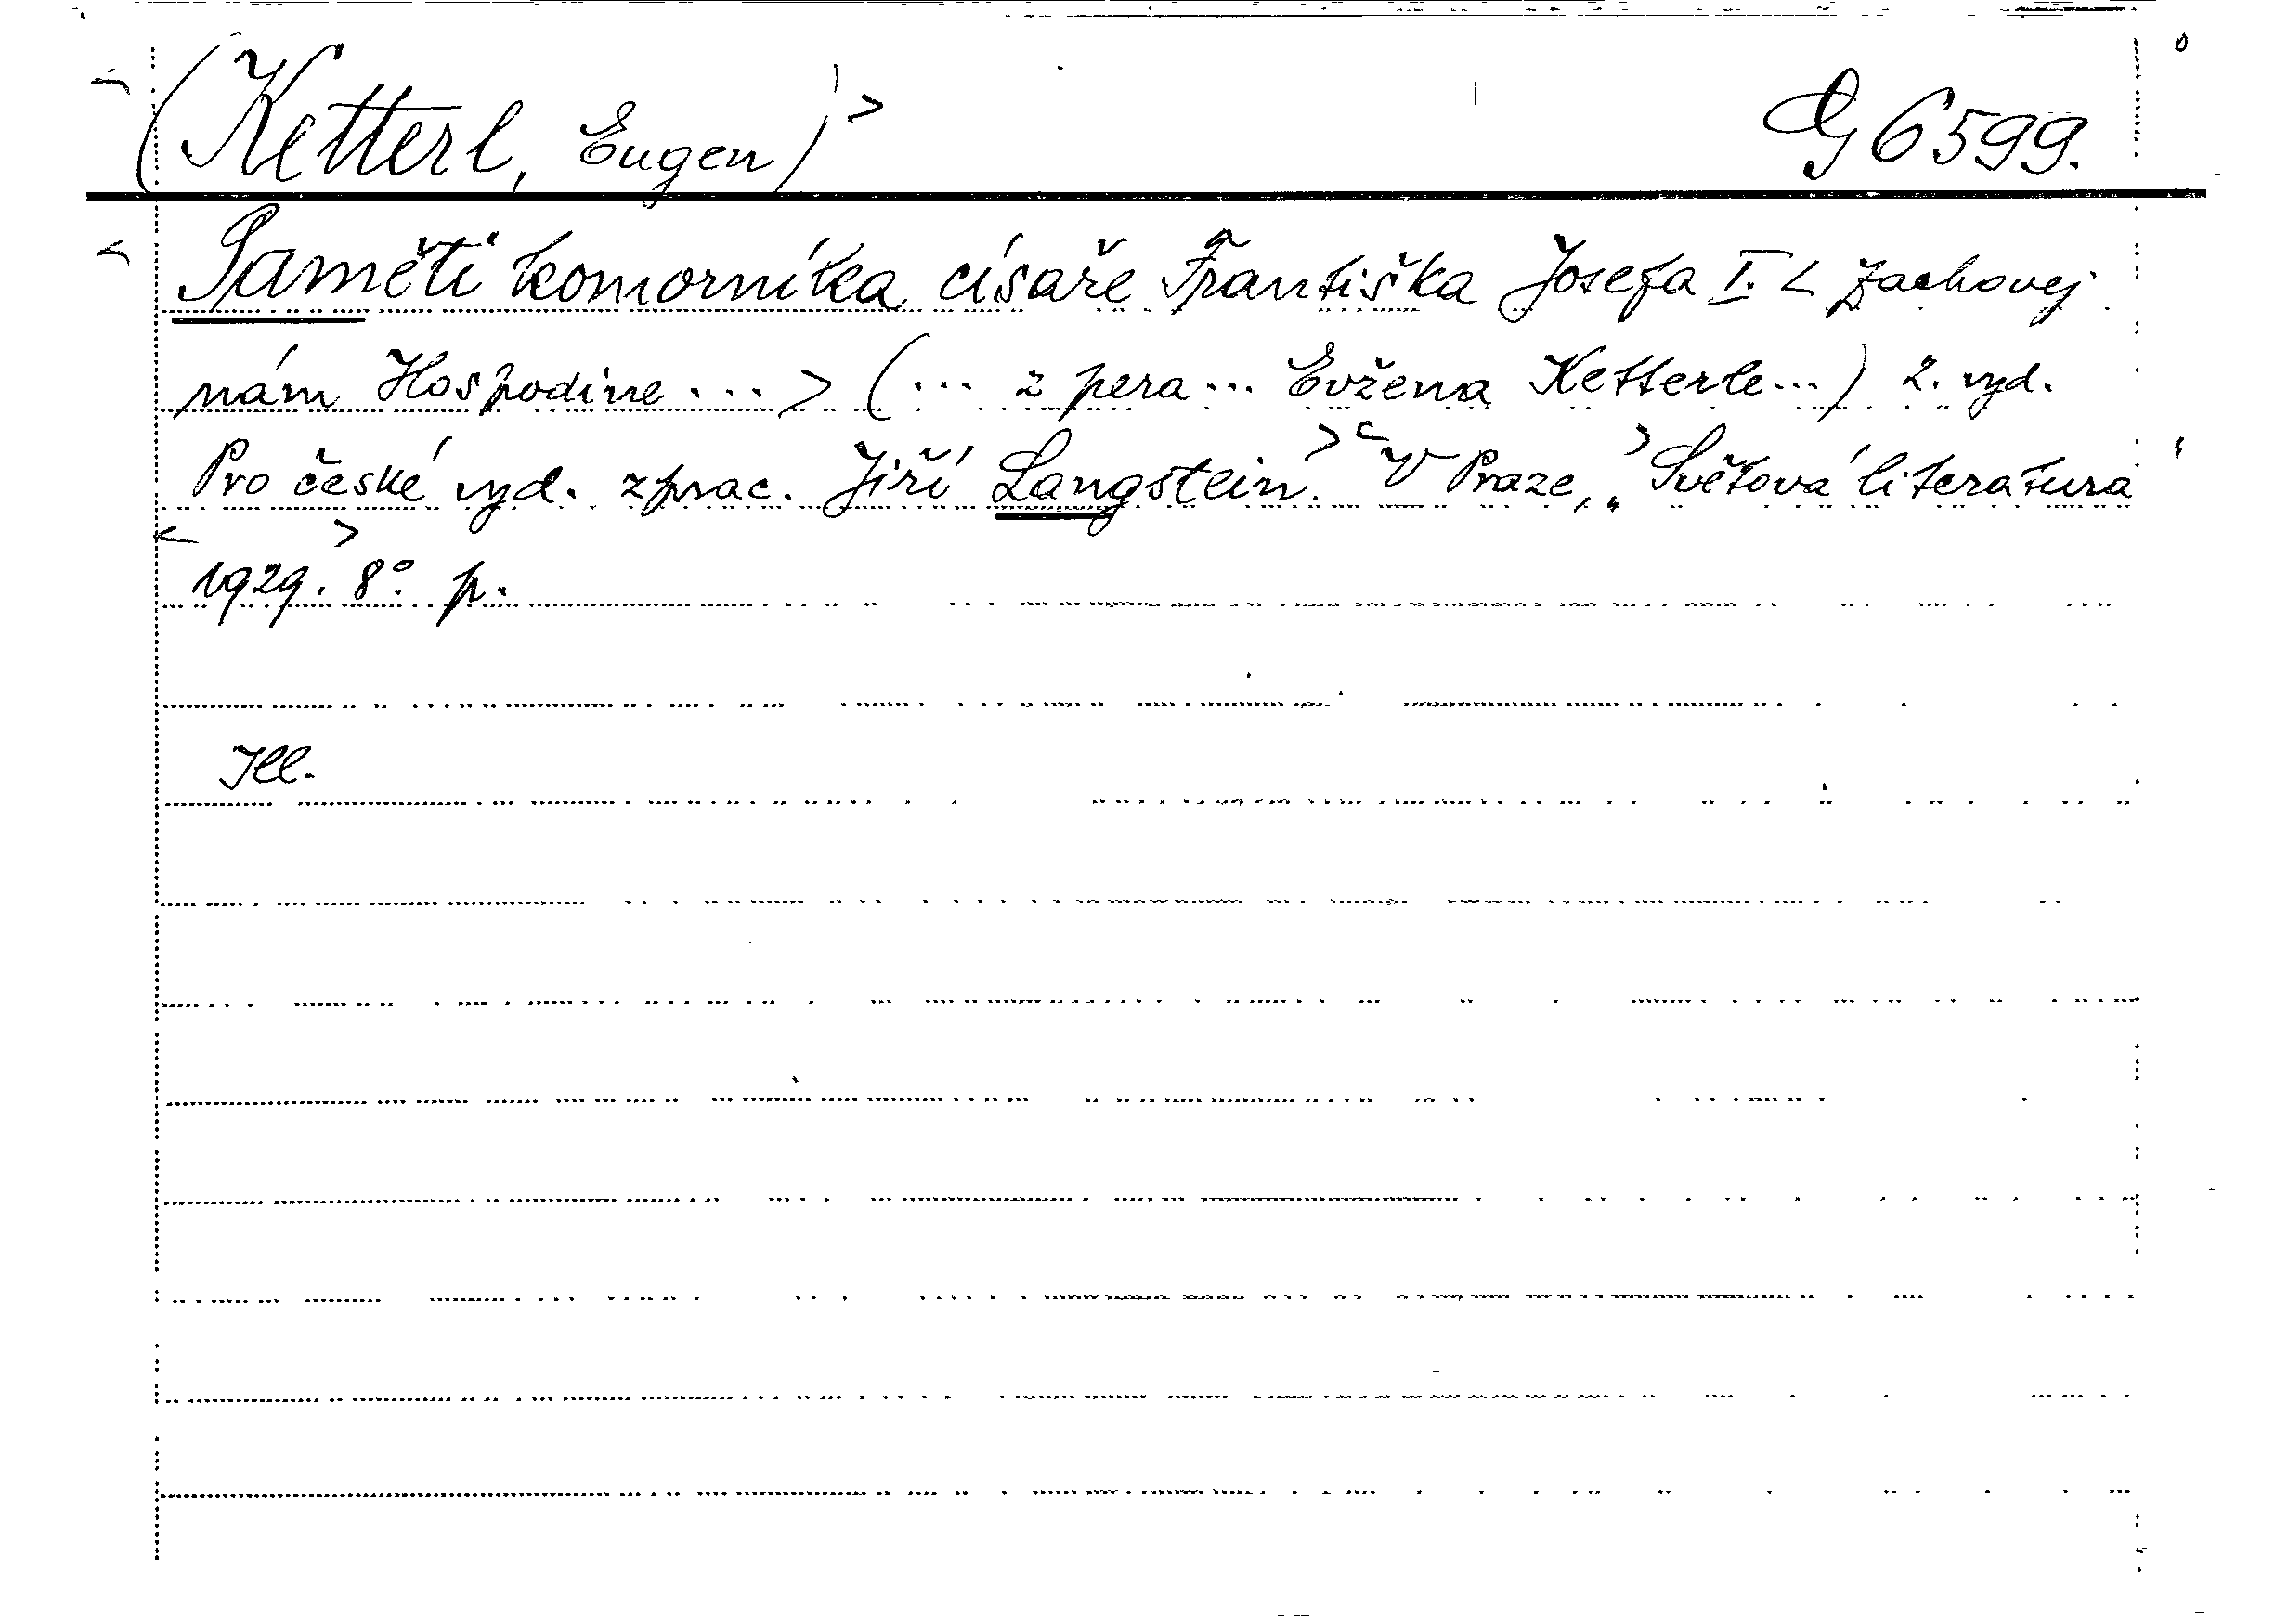 (Ketterl, Eugen) > G 6599.
< Paměti komorníka císaře Františka Josefa I. < Zachovej
nám Hospodine ... > (... z pera ... Evžena Ketterle ...) 2. vyd.
Pro české vyd. zprac. Jiří Langstein. > < V Praze, > „Světová literatura"
< 1929. > 8° p.
Ill.